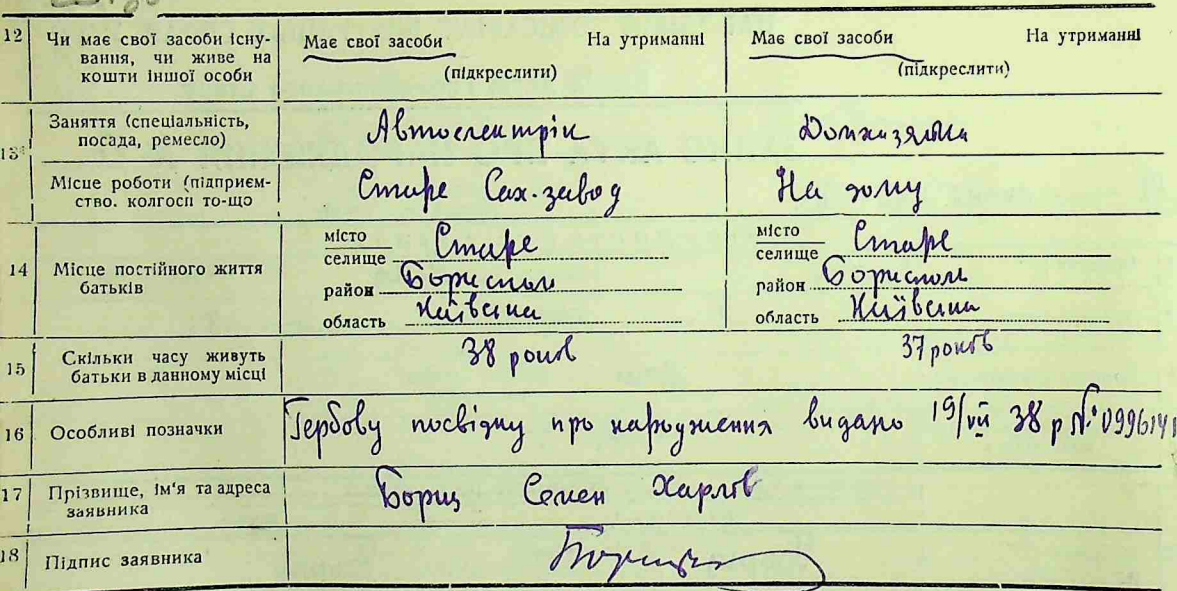 12 Чи має свої засоби існування, чи живе на кошти іншої особи
Має свої засоби На утриманні
(підкреслити)
Має свої засоби На утриманні
(підкреслити)
13 Заняття (спеціальність, посада, ремесло)
Автоелектрік
Домхазяйка
Місце роботи (підприємство. колгосп то-що
Старе Сах. завод
На дому
14 Місце постійного життя батьків
місто
селище Старе
район Бориспол
область Київська
місто
селище Старе
район Бориспол
область Київська
15 Скільки часу живуть батьки в данному місці
38 років
37 років
16 Особливі позначки
Гербову посвідку про народження видано 19/VII 38 р № 0996141
17 Прізвище, ім'я та адреса заявника
Борщ Семен Харлів
18 Підпис заявника